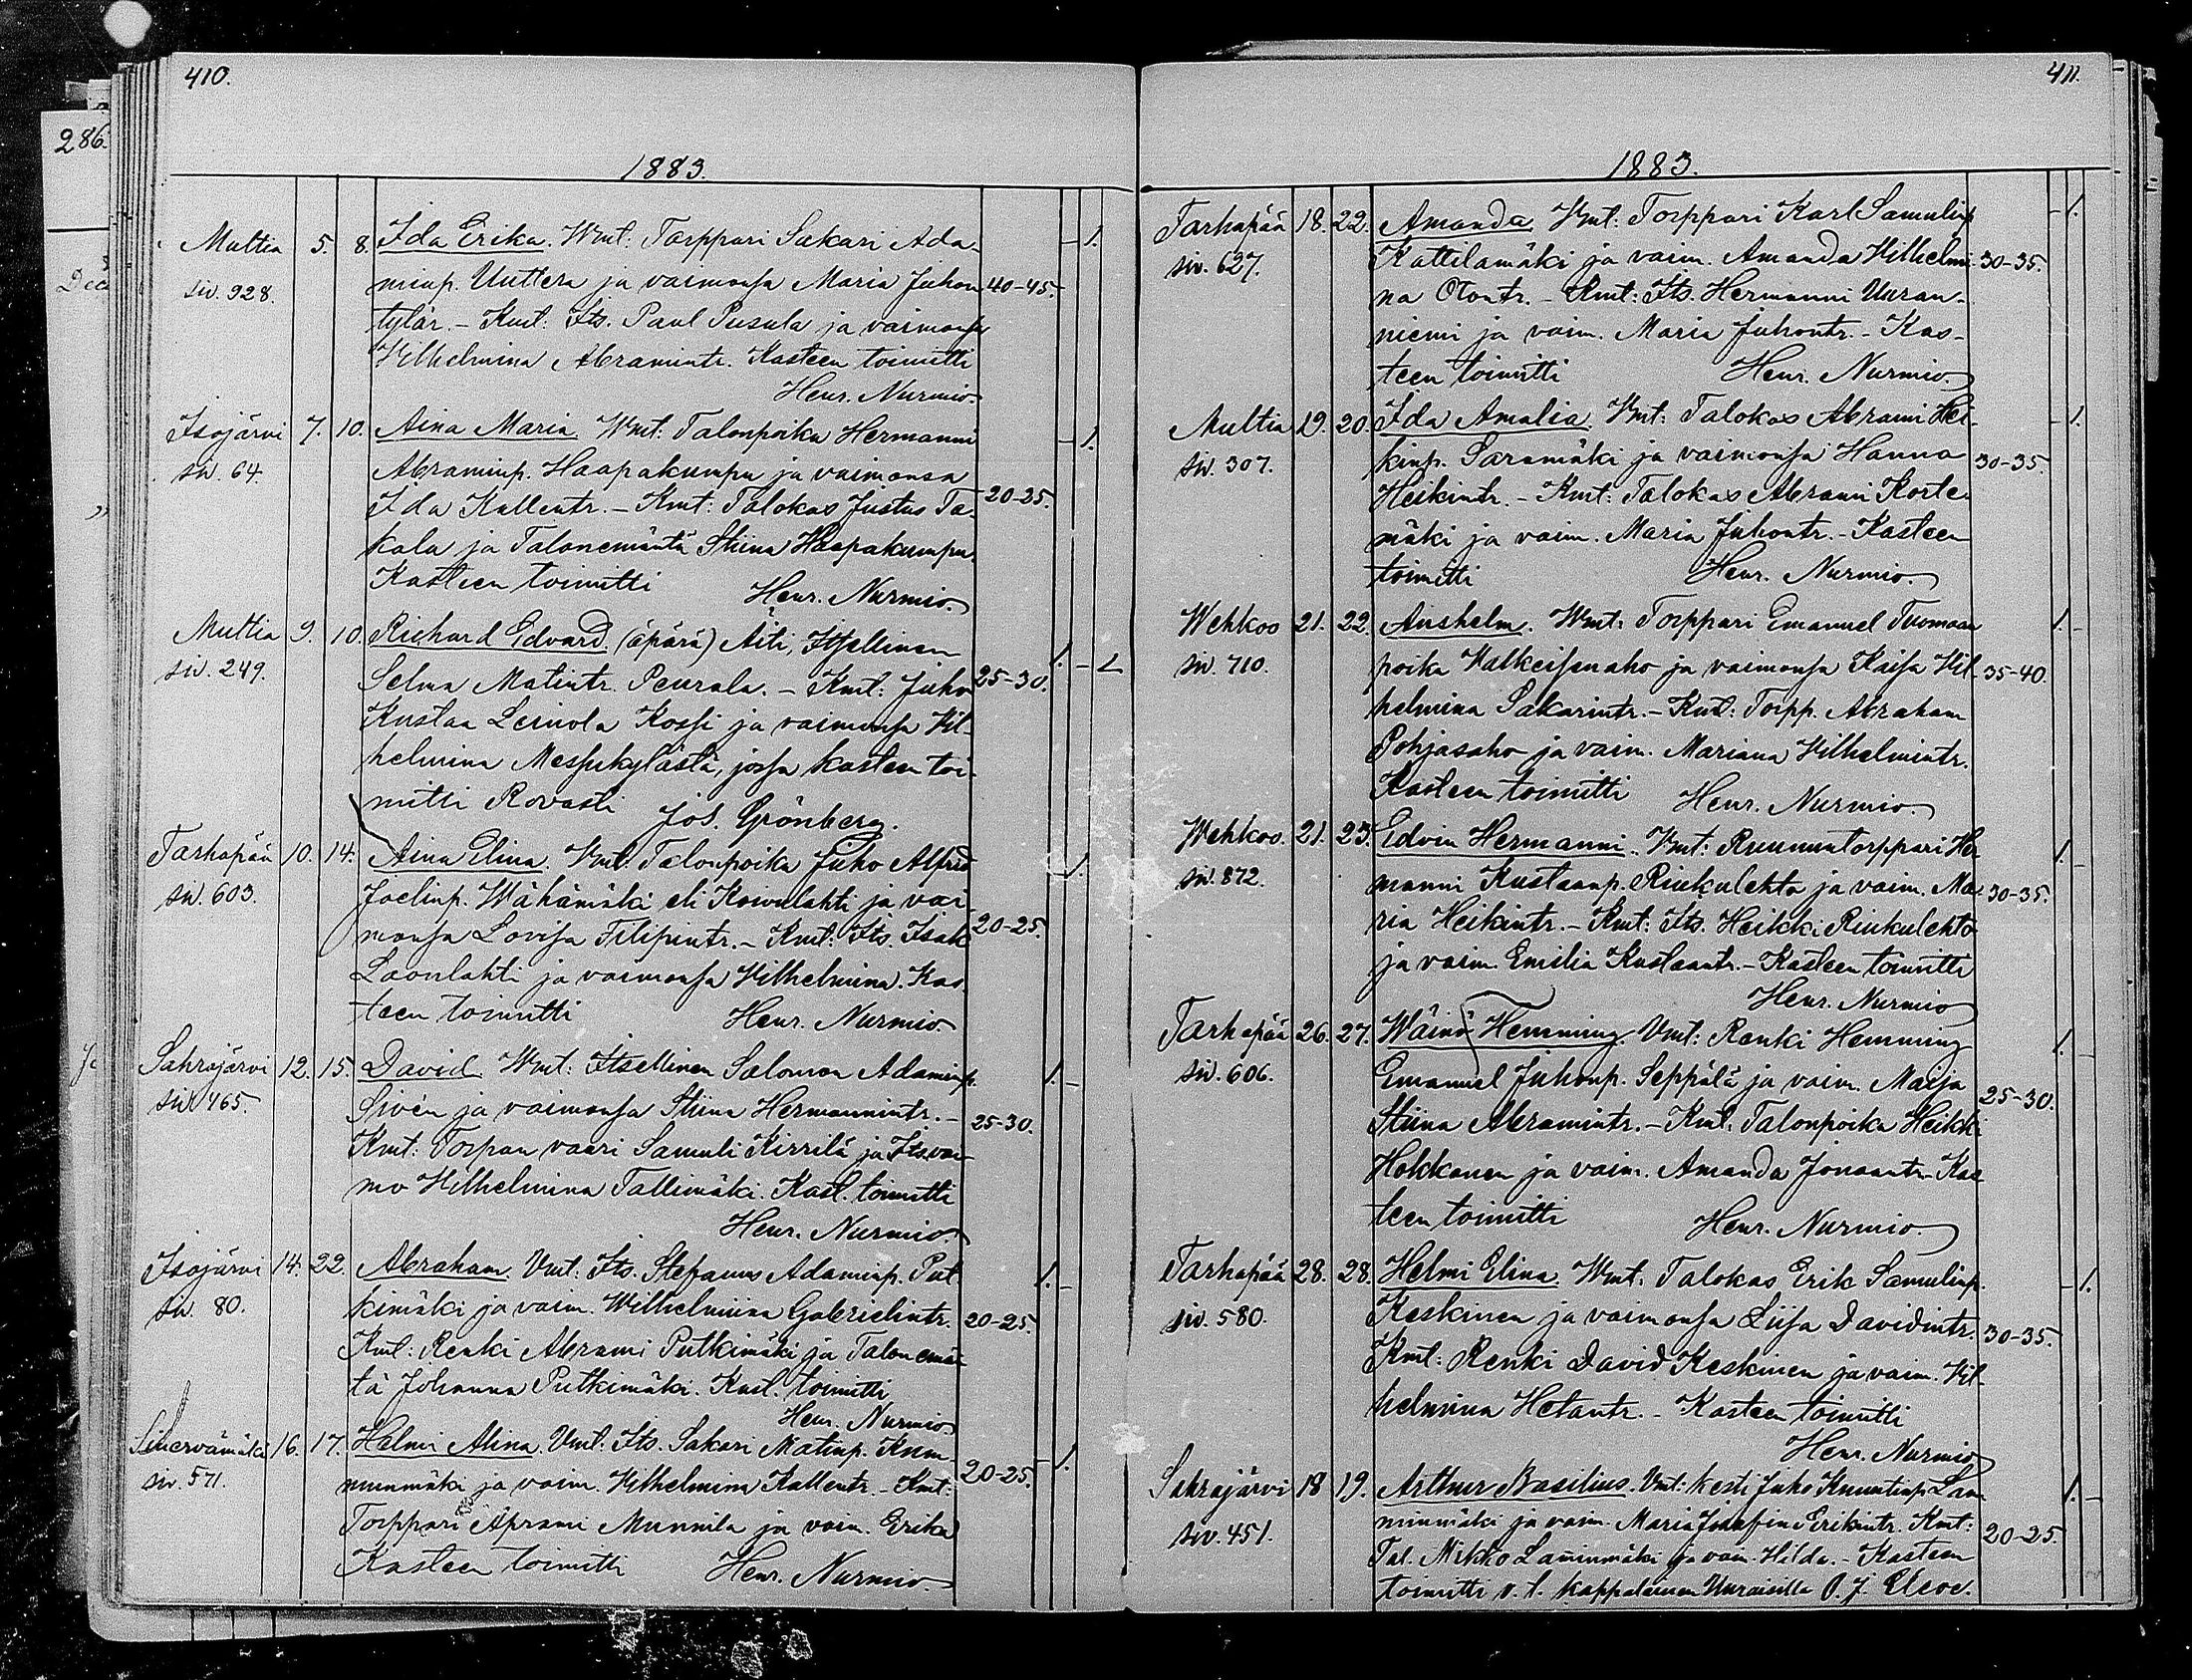 410.
1883.
286.
Dec
Multia 5. 8. Ida Erika. Vmt: Torppari Sakari Ada-
siv. 928. minp. Uuttera ja vaimonsa Maria Juhon 40-45.
tytär. - Kmt: Its. Paul Pusula ja vaimonsa
Vilhelmina Abramintr. Kasteen toimitti
Henr. Nurmio.
Isojärvi 7. 10. Aina Maria. Vmt: Talonpoika Hermanni
siv. 64. Abraminp. Haapakumpu ja vaimonsa
Ida Kallentr. - Kmt: Talokas Justus Ta- 20-25.
kala ja Talonemäntä Stiina Haapakumpu.
Kasteen toimitti Henr. Nurmio.
Multia 9. 10. Richard Edvard. (äpärä) Äiti, Itsellinen
siv. 249. Selma Matintr. Peurala. - Kmt: Juho 25-30.
Kustaa Leinola Kossi ja vaimonsa Vil-
helmina Messukylästä, jossa kasteen toi-
mitti Rovasti Jos. Grönberg.
Tarhapää 10. 14. Aina Elina. Vmt: Talonpoika Juho Alfred
siv. 603. Joelinp. Wähämäki eli Koivulahti ja vai-
monsa Lovisa Filipintr. - Kmt: Its. Isak 20-25.
Laonlahti ja vaimonsa Vilhelmina. Kas-
teen toimitti Henr. Nurmio.
Sahrajärvi 12. 15. David. Vmt: Itsellinen Salomon Adaminp.
siv. 465. Sivén ja vaimonsa Stiina Hermannintr. - 25-30.
Kmt: Torpan vaari Samuli Kirrilä ja Its. vai-
mo Vilhelmina Tallimäki. Kast. toimitti
Henr. Nurmio.
Isojärvi 14. 22. Abraham. Vmt: Its. Stefanus Adaminp. Put-
siv. 80. kimäki ja vaim. Wilhelmiina Gabrielintr. 20-25.
Kmt: Renki Abrami Putkimäki ja Talonemän-
tä Johanna Putkimäki. Kast. toimitti
Henr. Nurmio.
Sinervämäki 16. 17. Helmi Alina. Vmt: Its. Sakari Matinp. Kum-
siv. 571. munmäki ja vaim. Vilhelmina Kallentr. - Kmt: 20-25.
Torppari Aprami Munnila ja vaim. Erika
Kasteen toimitti Henr. Nurmio.
411.
1883.
Tarhapää 18. 22. Amanda. Vmt: Torppari Karl Samulinp.
siv. 627. Kattilamäki ja vaim. Amanda Vilhelmi- 30-35.
na Otontr. - Kmt: Its. Hermanni Uuran-
niemi ja vaim. Maria Juhontr. - Kas-
teen toimitti Henr. Nurmio.
Multia 19. 20. Ida Amalia. Vmt: Talokas Abrami Hei-
siv. 307. kinp. Saramäki ja vaimonsa Hanna 30-35.
Heikintr. - Kmt: Talokas Abrami Korte-
mäki ja vaim. Maria Juhontr. - Kasteen
toimitti Henr. Nurmio.
Wehkoo 21. 22. Anshelm. Vmt: Torppari Emanuel Tuomaan
siv. 710. poika Valkeisenaho ja vaimonsa Kaisa Vil- 35-40.
helmina Sakarintr. - Kmt: Torpp. Abraham
Pohjasaho ja vaim. Mariana Vilhelmintr.
Kasteen toimitti Henr. Nurmio.
Wehkoo. 21. 23. Edvin Hermanni. Vmt: Ruununtorppari Her-
siv. 872. manni Kustaanp. Riukulehto ja vaim. Ma- 30-35.
ria Heikintr. - Kmt: Its. Heikki Riukulehto
ja vaim. Emilia Kustaantr. - Kasteen toimitti
Henr. Nurmio
Tarhapää 26. 27. Wäinö Hemming. Vmt: Renki Hemming
siv. 606. Emanuel Juhonp. Seppälä ja vaim. Maija 25-30.
Stiina Abramintr. - Kmt: Talonpoika Heikki
Hokkanen ja vaim. Amanda Jonaantr. Kas-
teen toimitti Henr. Nurmio.
Tarhapää 28. 28. Helmi Elina. Vmt: Talokas Erik Samulinp.
siv. 580. Keskinen ja vaimonsa Liisa Davidintr. 30-35.
Kmt: Renki David Keskinen ja vaim. Vil-
helmina Hetantr. - Kasteen toimitti
Henr. Nurmio
Sahrajärvi 18 19. Arthur Basilius. Vmt: kesti Juho Knuutinp. Lam-
siv. 451. minmäki ja vaim. Maria Josefina Erikintr. Kmt:
Tal. Mikko Lamminmäki ja vaim. Hilda. - Kasteen 20-25.
toimitti v. t. kappalainen Uuraisilla O. J. Cleve.